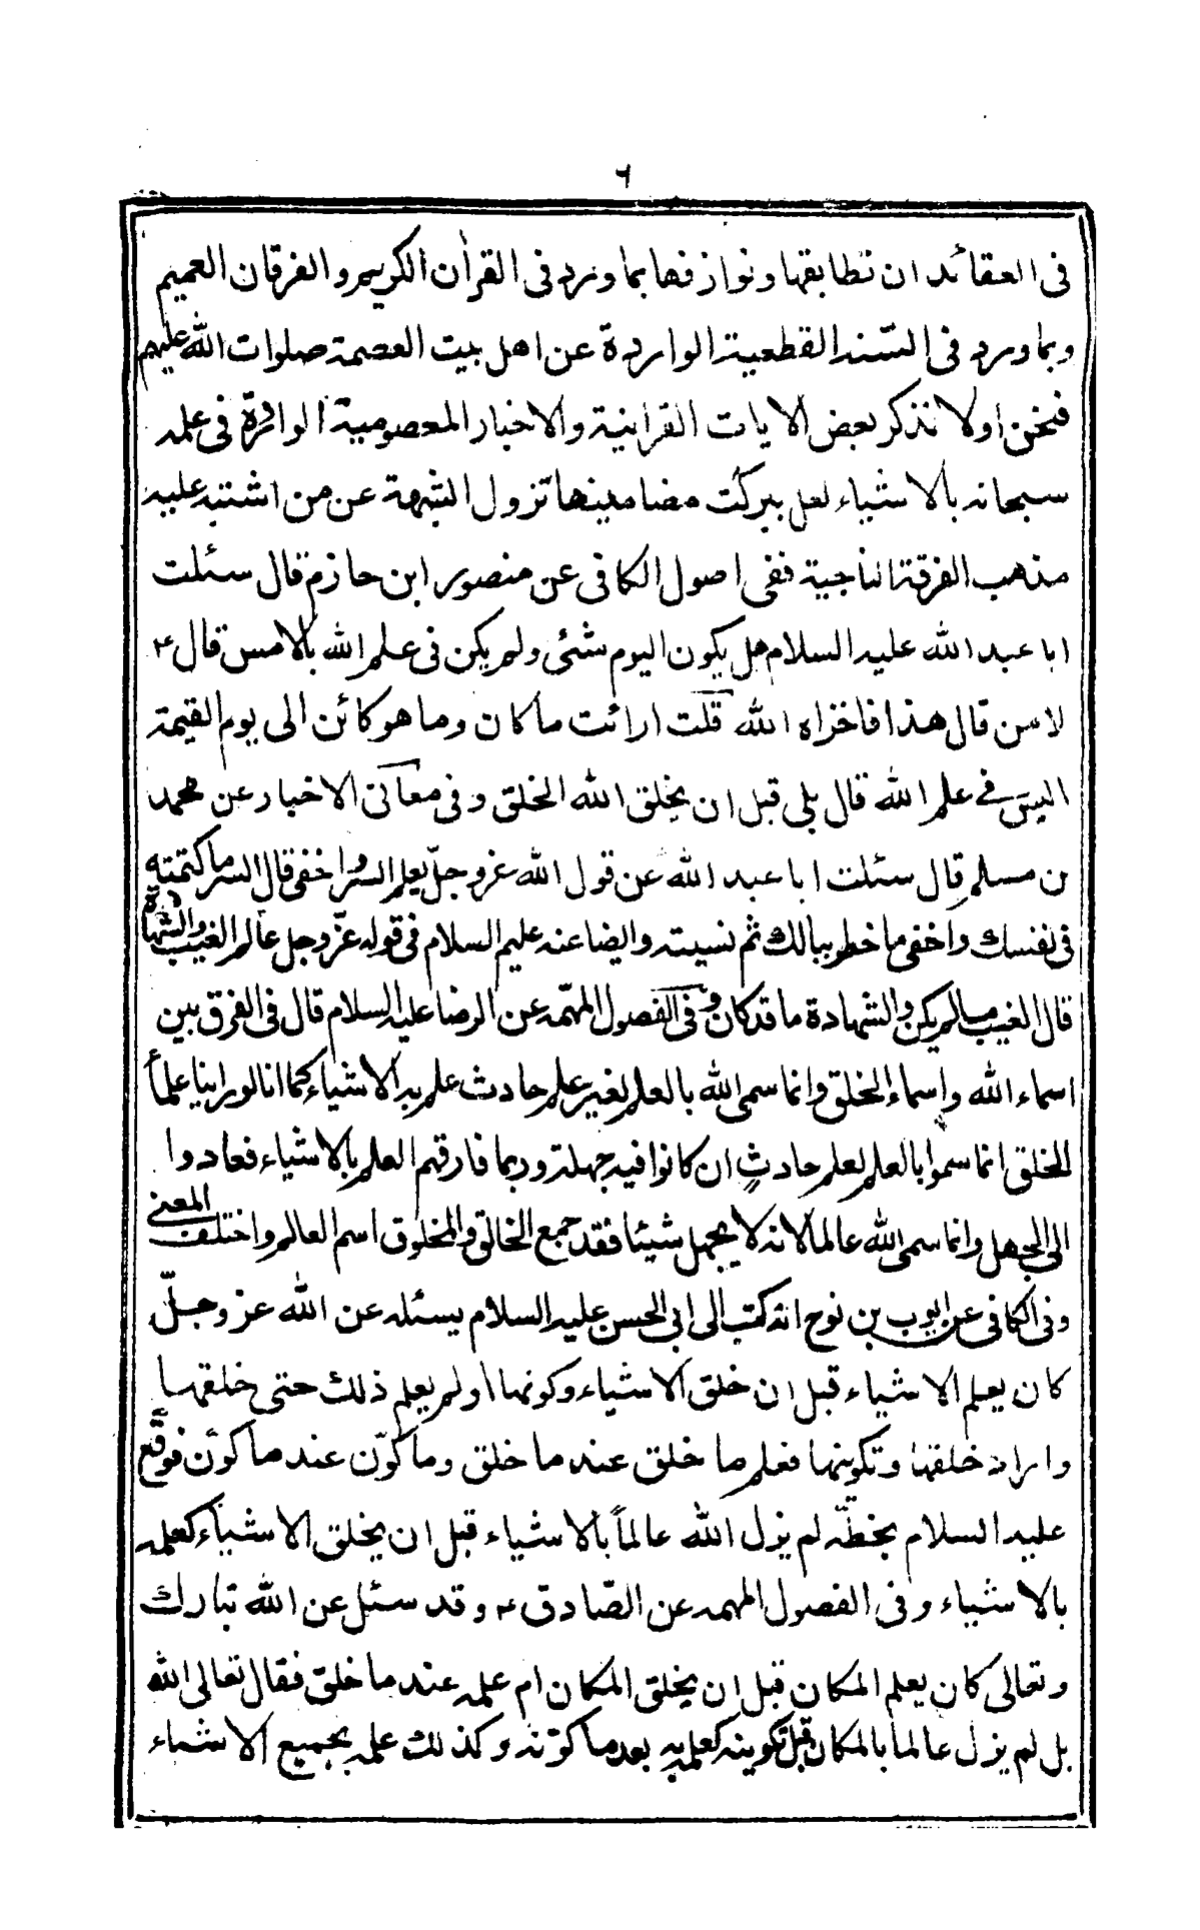 ٦
فى العقائد ان تطابقها ونوازفها بما ورد فى القرآن الكريم والفرقان العميم
وبما ورد فى السّنة القطعية الواردة عن اهل بيت العصمة صلوات الله عليهم
فنحن اولا نذكر بعض الايات القرانية والاخبار المعصومية الوافرة فى علمه
سبحانه بالاشياء لعل ببركت مضامينها تزول الشبهة عن من اشتبه عليه
مذهب الفرقة الناجية ففى اصول الكافى عن منصور ابن حازم قال سئلت
ابا عبد الله عليه السلام هل يكون اليوم شئى ولم يكن فى علم الله بالامس قال ع
لا من قال هذا فاخزاه الله قلت ارائت ما كان وما هو كائن الى يوم القيمة
اليس فى علم الله قال بلى قبل ان يخلق الله الخلق وفى معانى الاخبار عن محمد
بن مسلم قال سئلت ابا عبد الله عن قول الله عز وجلّ يعلم السر واخفى قال السر ما كتمته
فى نفسك واخفى ما خطر ببالك ثم نسيته وايضا عنه عليهم السلام فى قوله عزّ وجل عالم الغيب والشهادة
قال الغيب مالم يكن والشهادة ما قد كان وفى الفصول المهمّه عن الرضا عليه السلام قال فى الفرق بين
اسماء الله واسماء الخلق وانما سمى الله بالعلم لغير علم حادث علم به الاشياء كما انا لو راينا علماء
الخلق انما سموا بالعلم لعلم حادثٍ ان كانوا فيه جهلة وربما فارقهم العلم بالاشياء فعادوا
الى الجهل وانما سمى الله عالما لانه لا يجهل شيئا فقد جمع الخالق والمخلوق اسم العالم واختلف المعنى
وفى الكافى عن ايوب بن نوح انه كتب الى ابى الحسن عليه السلام يسئله عن الله عز وجلّ
كان يعلم الاشياء قبل ان خلق الاشياء وكونها اولم يعلم ذلك حتى خلقها
واراد خلقها وتكوينها فعلم ما خلق عند ما خلق وما كوّن عند ما كوّن فوقّع
عليه السلام بخطّه لم يزل الله عالماً بالاشياء قبل ان يخلق الاشياء كعلمه
بالاشياء وفى الفصول المهمه عن الصّادق ع وقد سئل عن الله تبارك
وتعالى كان يعلم المكان قبل ان يخلق المكان ام علمه عند ما خلق فقال تعالى الله
بل لم يزل عالما بالمكان قبل تكوينه كعلمه به بعد ما كوّنه وكذلك علمه بجميع الاشياء